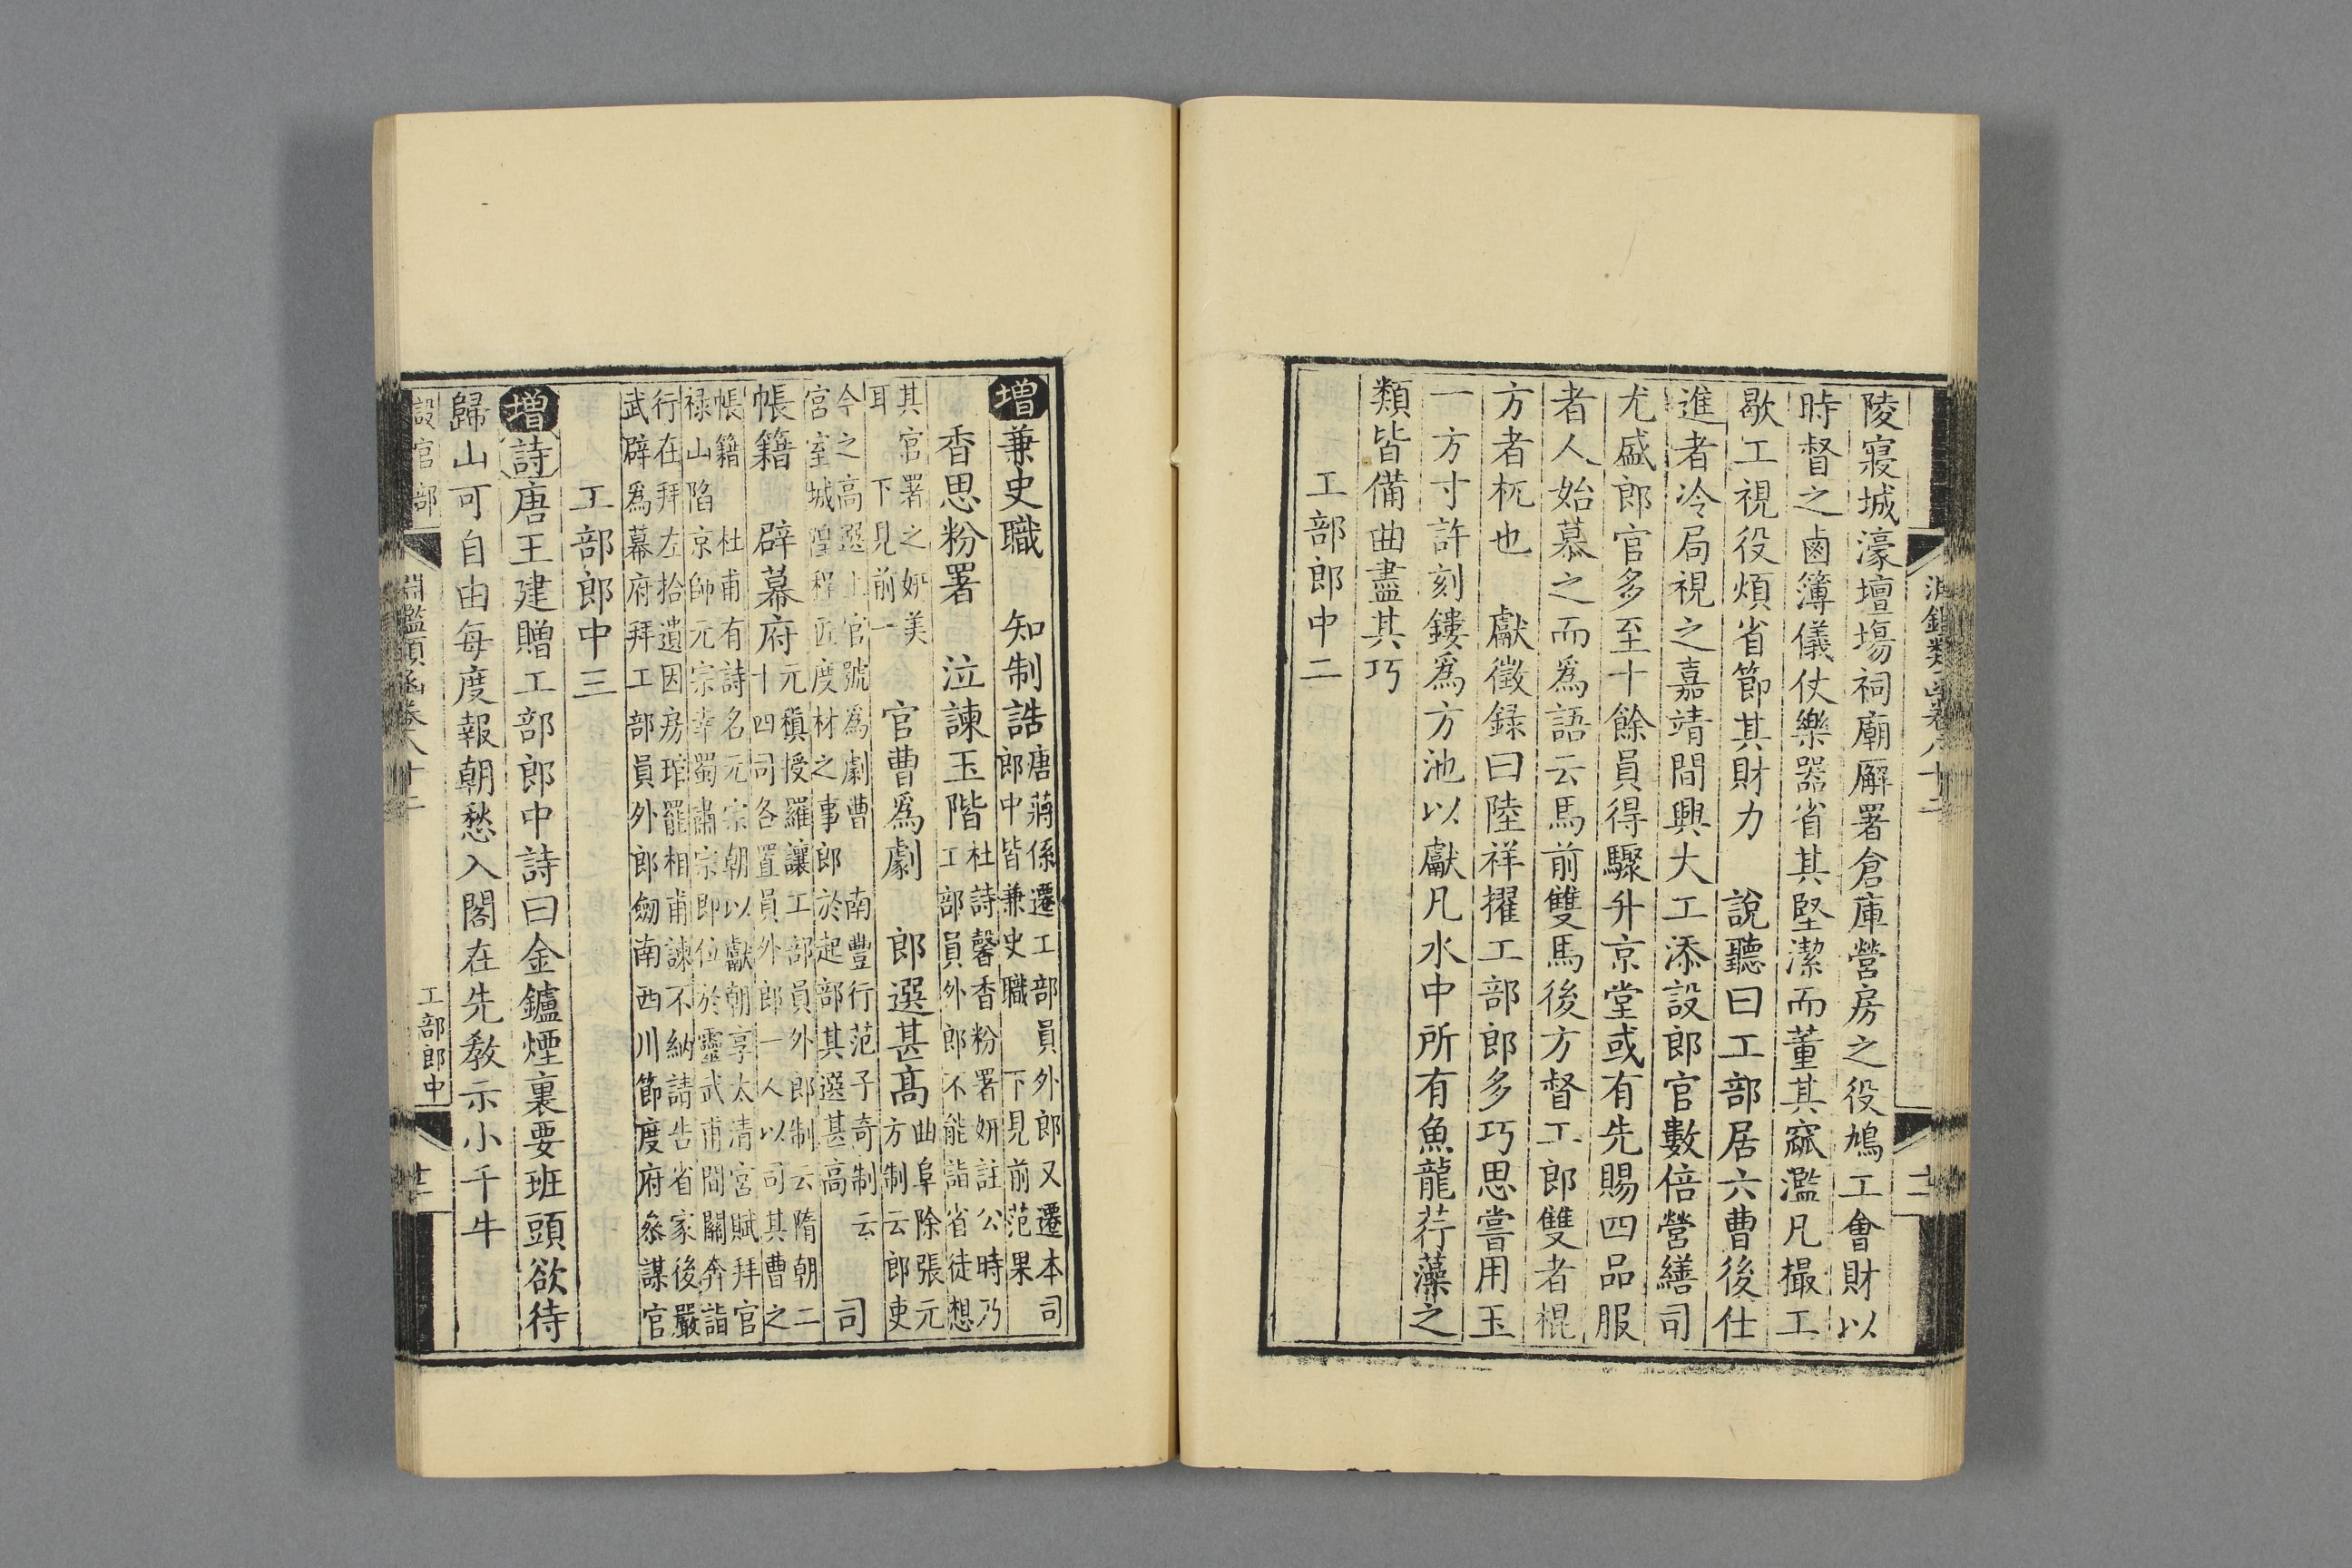 陵寢城濠壇場祠廟廨署倉庫營房之役鳩工會財以
時督之鹵簿儀仗樂器省其堅潔而董其窳濫凡撮工
歇工視役煩省節其財力 說聽曰工部居六曹後仕
進者冷局視之嘉靖間興大工添設郎官數倍營繕司
尤盛郎官多至十餘員得驟升京堂或有先賜四品服
者人始慕之而爲語云馬前雙馬後方督工郎雙者棍
方者杌也 獻徵録曰陸祥擢工部郎多巧思嘗用玉
一方寸許刻鏤爲方池以獻凡水中所有魚龍荇藻之
類皆備曲盡其巧
工部郎中二
增兼史職 知制誥唐蔣係遷工部員外郎又遷本司
郎中皆兼史職 下見前范果
香思粉署 泣諫玉階杜詩馨香粉署妍註公時乃
工部員外郎不能詣省徒想
其官署之妍美
耳 下見前一 官曹爲劇 郎選甚高曲阜除張元
方制云郎吏
今之高選工官號爲劇曹 南豐行范子奇制云
官室城隍程匠度材之事郎於起部其選甚高 司
帳籍 辟幕府元稹授羅讓工部員外郎制云隋朝二
十四司各置員外郎一人以司其曹之
帳籍 杜甫有詩名元宗朝以獻朝享太清宮賦拜官
禄山陷京師元宗幸蜀肅宗即位於靈武甫間關奔詣
行在拜左拾遺因房琯罷相甫諫不納請告省家後嚴
武辟爲幕府拜工部員外郎劒南西川節度府叅謀官
工部郎中三
增詩唐王建贈工部郎中詩曰金鑪煙裏要班頭欲待
歸山可自由每度報朝愁入閣在先教示小千牛
設官部 淵鑑類函卷八十二 工部郎中